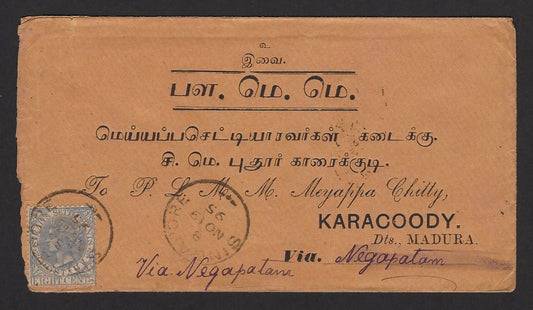 உ
இவை.
பள. மெ. மெ.
மெய்யப்பசெட்டியாரவர்கள் கடைக்கு.
சி. மெ. புதூர் காரைக்குடி.
To P. L. M. M. Meyappa Chitty,
KARACOODY.
Dts., MADURA.
Via. Negapatam
Via. Negapatam
SINGAPORE
NO 19
95
EIGHT CENTS